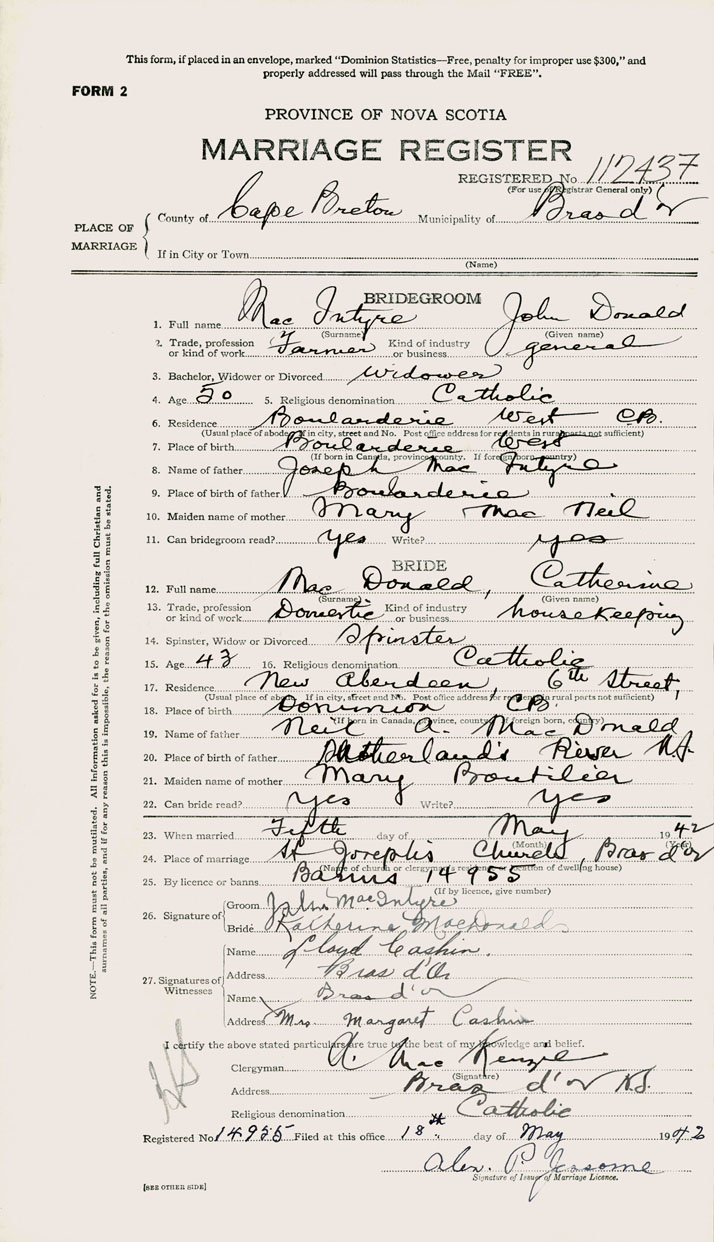 This form, if placed in an envelope, marked "Dominion Statistics—Free, penalty for improper use $300," and
properly addressed will pass through the Mail "FREE".
FORM 2
PROVINCE OF NOVA SCOTIA
MARRIAGE REGISTER
REGISTERED No 112437
(For use of Registrar General only)
PLACE OF MARRIAGE
County of Cape Breton Municipality of Bras d'or
If in City or Town
(Name)
BRIDEGROOM
1. Full name Mac Intyre John Donald
(Surname) (Given name)
2. Trade, profession or kind of work Farmer Kind of industry or business general
3. Bachelor, Widower or Divorced widower
4. Age 50 5. Religious denomination Catholic
6. Residence Boularderie West CB.
(Usual place of abode, if in city, street and No. Post office address for residents in rural parts not sufficient)
7. Place of birth Boularderie West
(If born in Canada, province, county. If foreign born, country)
8. Name of father Joseph Mac Intyre
9. Place of birth of father Boularderie
10. Maiden name of mother Mary Mac Neil
11. Can bridegroom read? yes Write? yes
BRIDE
12. Full name Mac Donald, Catherine
(Surname) (Given name)
13. Trade, profession or kind of work Domestic Kind of industry or business housekeeping
14. Spinster, Widow or Divorced Spinster
15. Age 43 16. Religious denomination Catholic
17. Residence New Aberdeen, 6th Street,
(Usual place of abode. If in city, street and No. Post office address for residents in rural parts not sufficient)
18. Place of birth Dominion CB.
(If born in Canada, province, county. If foreign born, country)
19. Name of father Neil A. Mac Donald
20. Place of birth of father Sutherland's River N.S.
21. Maiden name of mother Mary Boutilier
22. Can bride read? yes Write? yes
23. When married Fifth day of May 1942
(Month) (Year)
24. Place of marriage St Joseph's Church, Bras d'or
(Name of church or clergyman's residence or location of dwelling house)
25. By licence or banns Banns 14955
(If by licence, give number)
26. Signature of
Groom John MacIntyre
Bride Katherine MacDonald
27. Signatures of Witnesses
Name Lloyd Cashin.
Address Bras d'Or
Name Bras d'or
Address Mrs Margaret Cashin
I certify the above stated particulars are true to the best of my knowledge and belief.
Clergyman A. Mac Kenzie
(Signature)
Address Bras d'or N.S.
Religious denomination Catholic
Registered No. 14955 Filed at this office 18th day of May 1942
Alex. P. Jessome
Signature of Issuer of Marriage Licence.
[SEE OTHER SIDE]
NOTE.—This form must not be mutilated. All information asked for is to be given, including full Christian and
surnames of all parties, and if for any reason this is impossible, the reason for the omission must be stated.